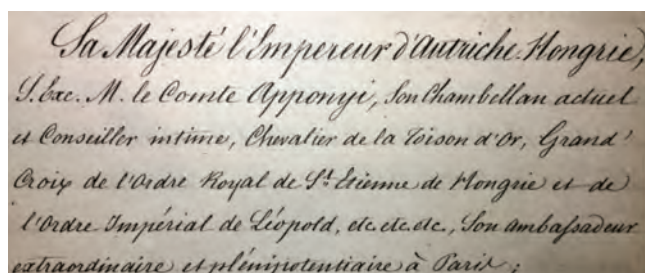 Sa Majesté l'Impereur d'Autriche-Hongrie,
S. Exc. M. le Comte Apponyi, Son Chambellan actuel
et Conseiller intime, Chevalier de la Toison d'Or, Grand'
Croix de l'Ordre Royal de St. Etienne de Hongrie et de
l'Ordre Impérial de Léopold, etc. etc. etc., Son ambassadeur
extraordinaire et plénipotentiaire à Paris;